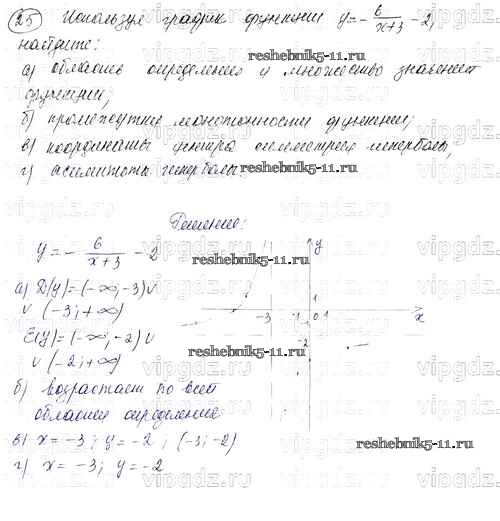 25 Используя график функции y = - 6/(x+3) - 2,
найдите:
а) область определения и множество значений
функции;
б) промежутки монотонности функции;
в) координаты центра симметрии гиперболы;
г) асимптоты гиперболы.
Решение:
y = - 6/(x+3) - 2
а) D(y) = (-∞; -3) ∪
∪ (-3; +∞)
E(y) = (-∞; -2) ∪
∪ (-2; +∞)
б) возрастает по всей
области определения
в) x = -3; y = -2; (-3; -2)
г) x = -3; y = -2
y
1
-3 -1 0 1 x
-2
reshebnik5-11.ru
reshebnik5-11.ru
reshebnik5-11.ru
reshebnik5-11.ru
reshebnik5-11.ru
reshebnik5-11.ru
vipgdz.ru